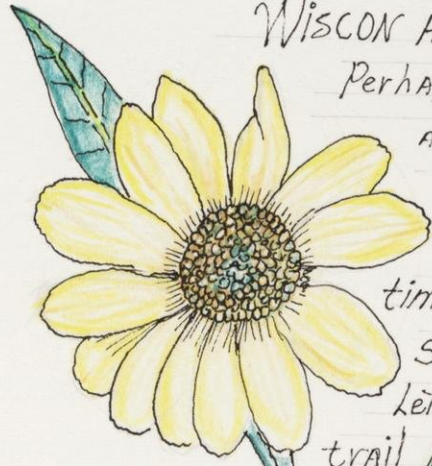 WISCON
Perha
tim
S
Let
trail